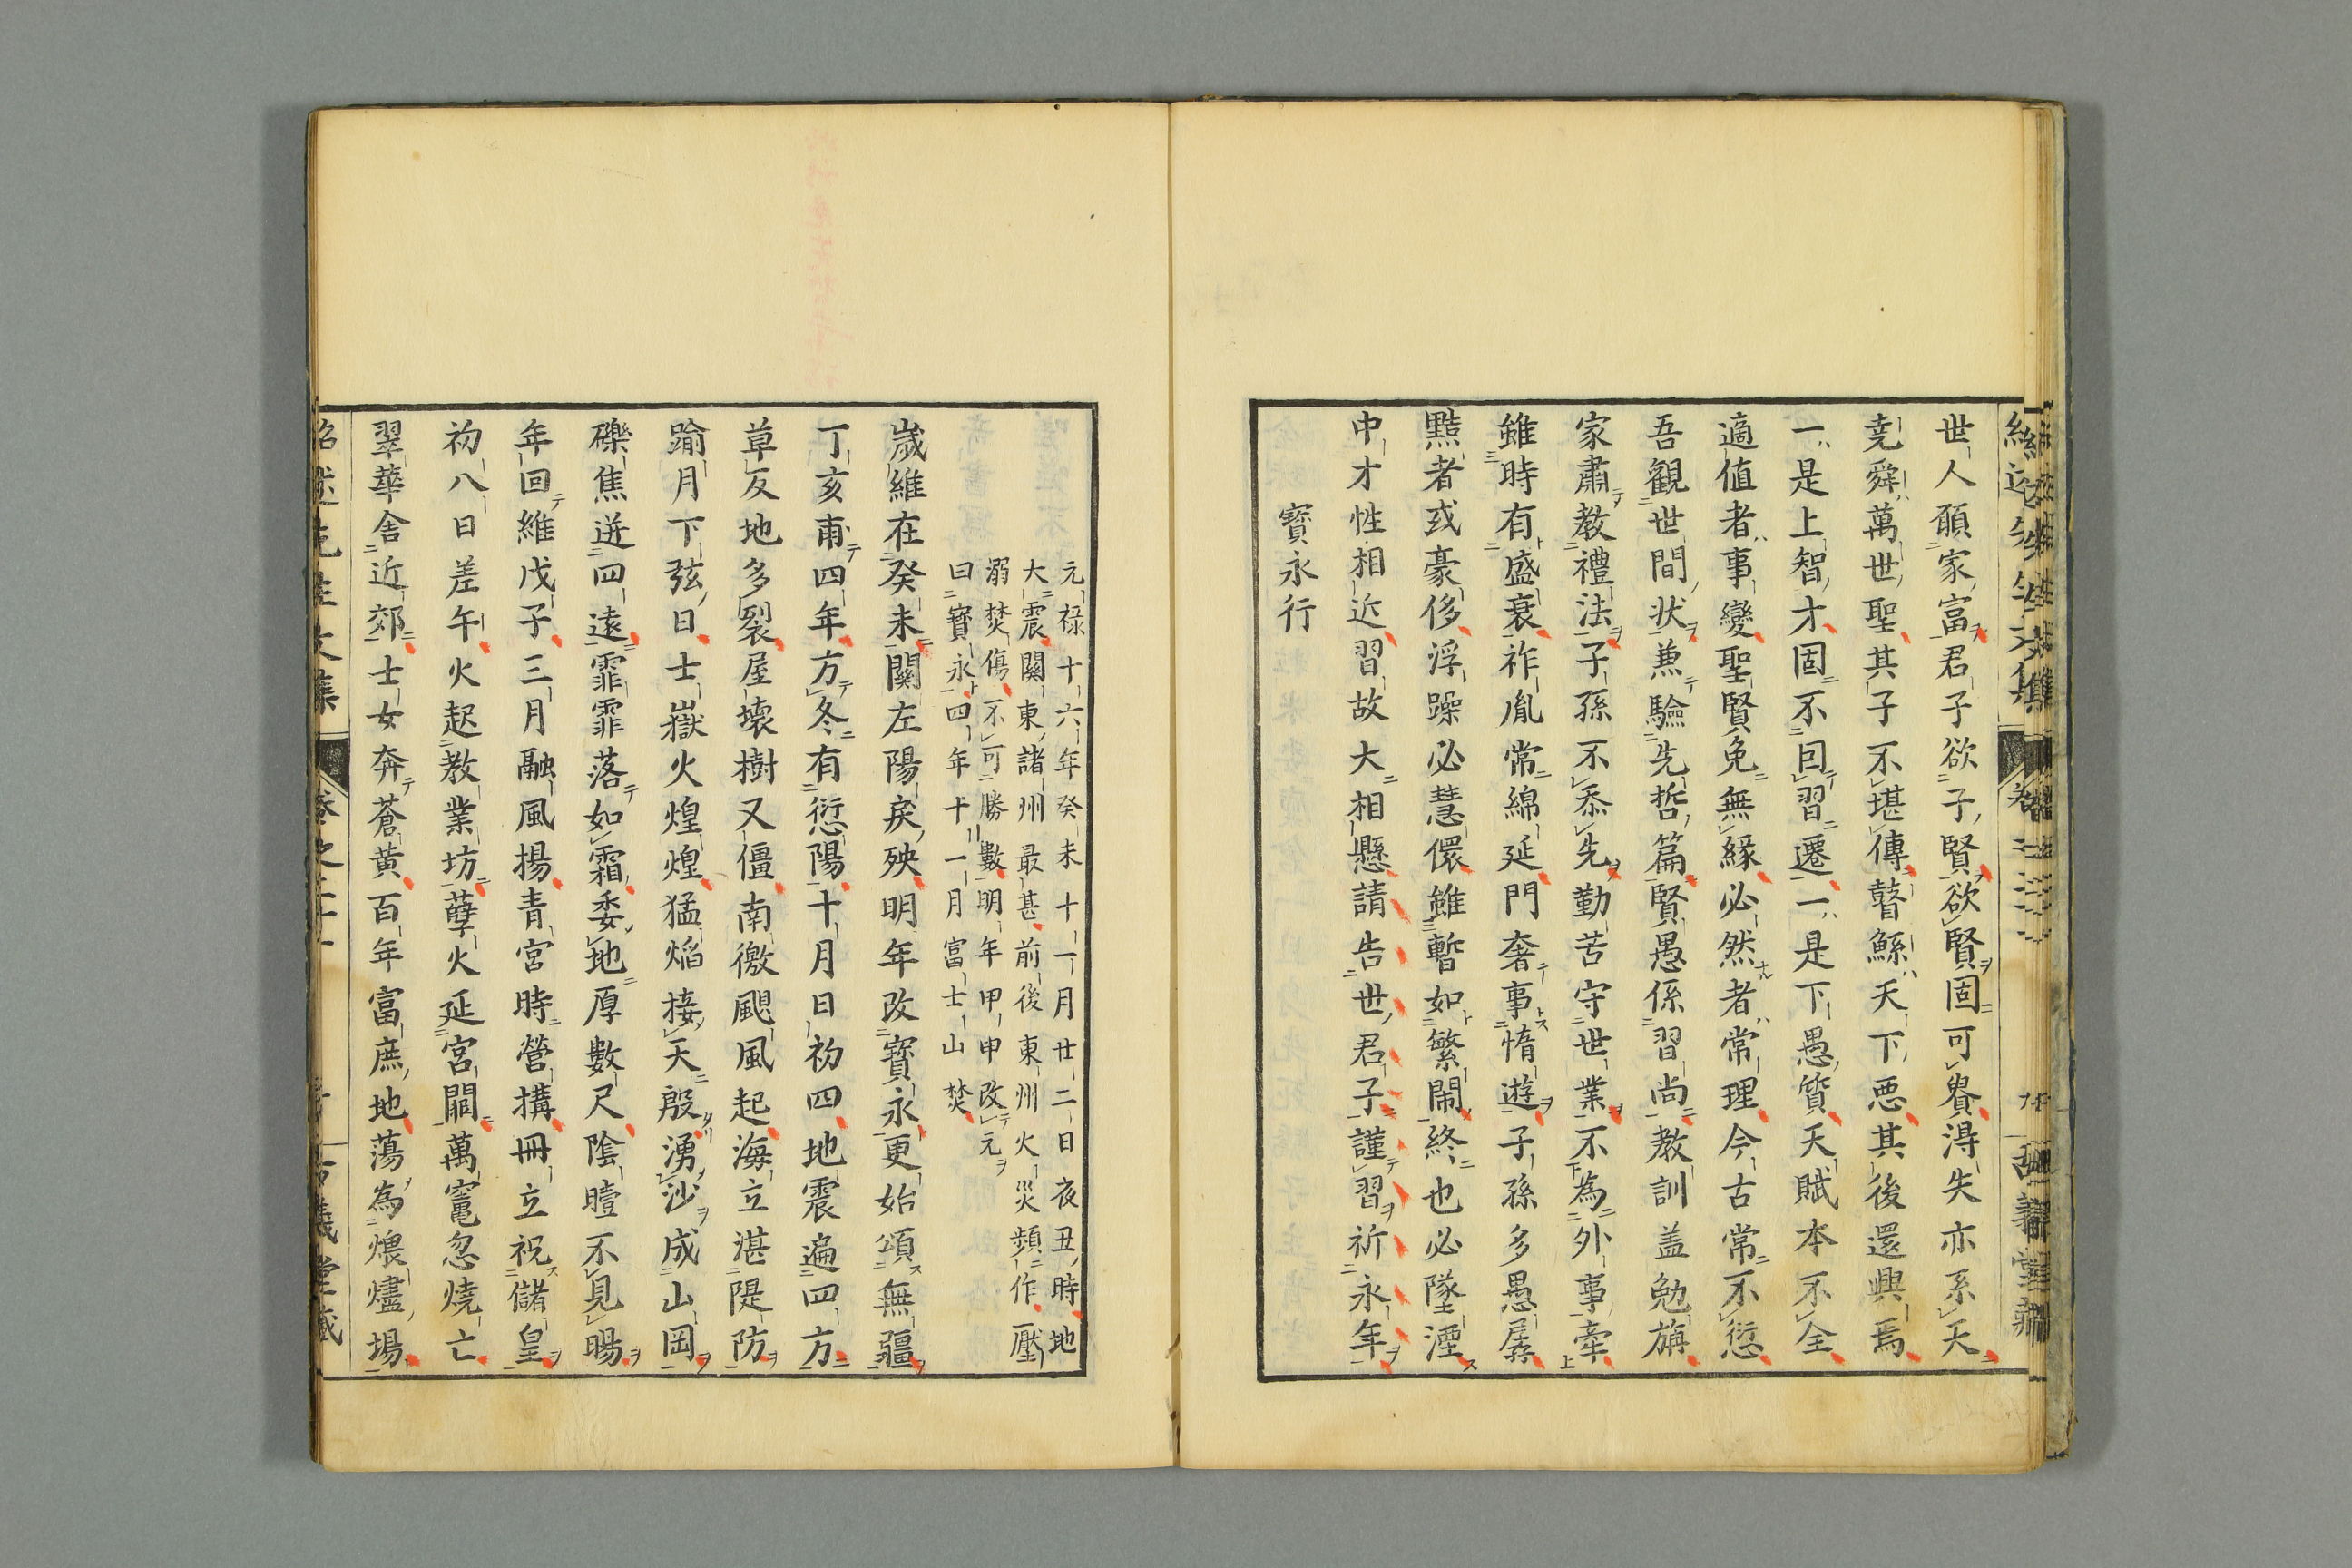 世人願家富君子欲子賢欲賢固可眷得失亦系天
堯舜萬世聖其子不堪傳瞽鯀天下悪其後還興焉
一是上智才固不囙習遷一是下愚質天賦本不全
適値者事變聖賢免無緣必然者常理今古常不愆
吾観世間状兼驗先哲篇賢愚係習尚教訓盖勉旃
家肅教禮法子孫不忝先勤苦守世業不為外事牽
雖時有盛衰祚胤常綿延門奢事惰遊子孫多愚孱
黠者或豪侈浮躁必慧儇雖暫如繁鬧終也必墜湮
中才性相近習故大相懸請告世君子謹習祈永年
寳永行
元禄十六年癸未十一月廿二日夜丑時地
大震關東諸州最甚前後東州火災頻作壓
溺焚傷不可勝數明年甲申改元
曰寳永四年十一月富士山焚
歳維在癸未關左陽戾殃明年改寳永更始頌無疆
丁亥甫四年方冬有愆陽十月日初四地震遍四方
草反地多裂屋壞樹又僵南徼颶風起海立湛隄防
踰月下弦日士嶽火煌煌猛焔接天殷湧沙成山岡
礫焦迸四遠霏霏落如霜委地厚數尺陰曀不見暘
年回維戊子三月融風揚青宮時營搆冊立祝儲皇
初八日差午火起教業坊孽火延宮闈萬竈忽燒亡
翠華舎近郊士女奔蒼黄百年富庶地蕩為煨燼場
紹述先生文集
卷之二十
古義堂藏